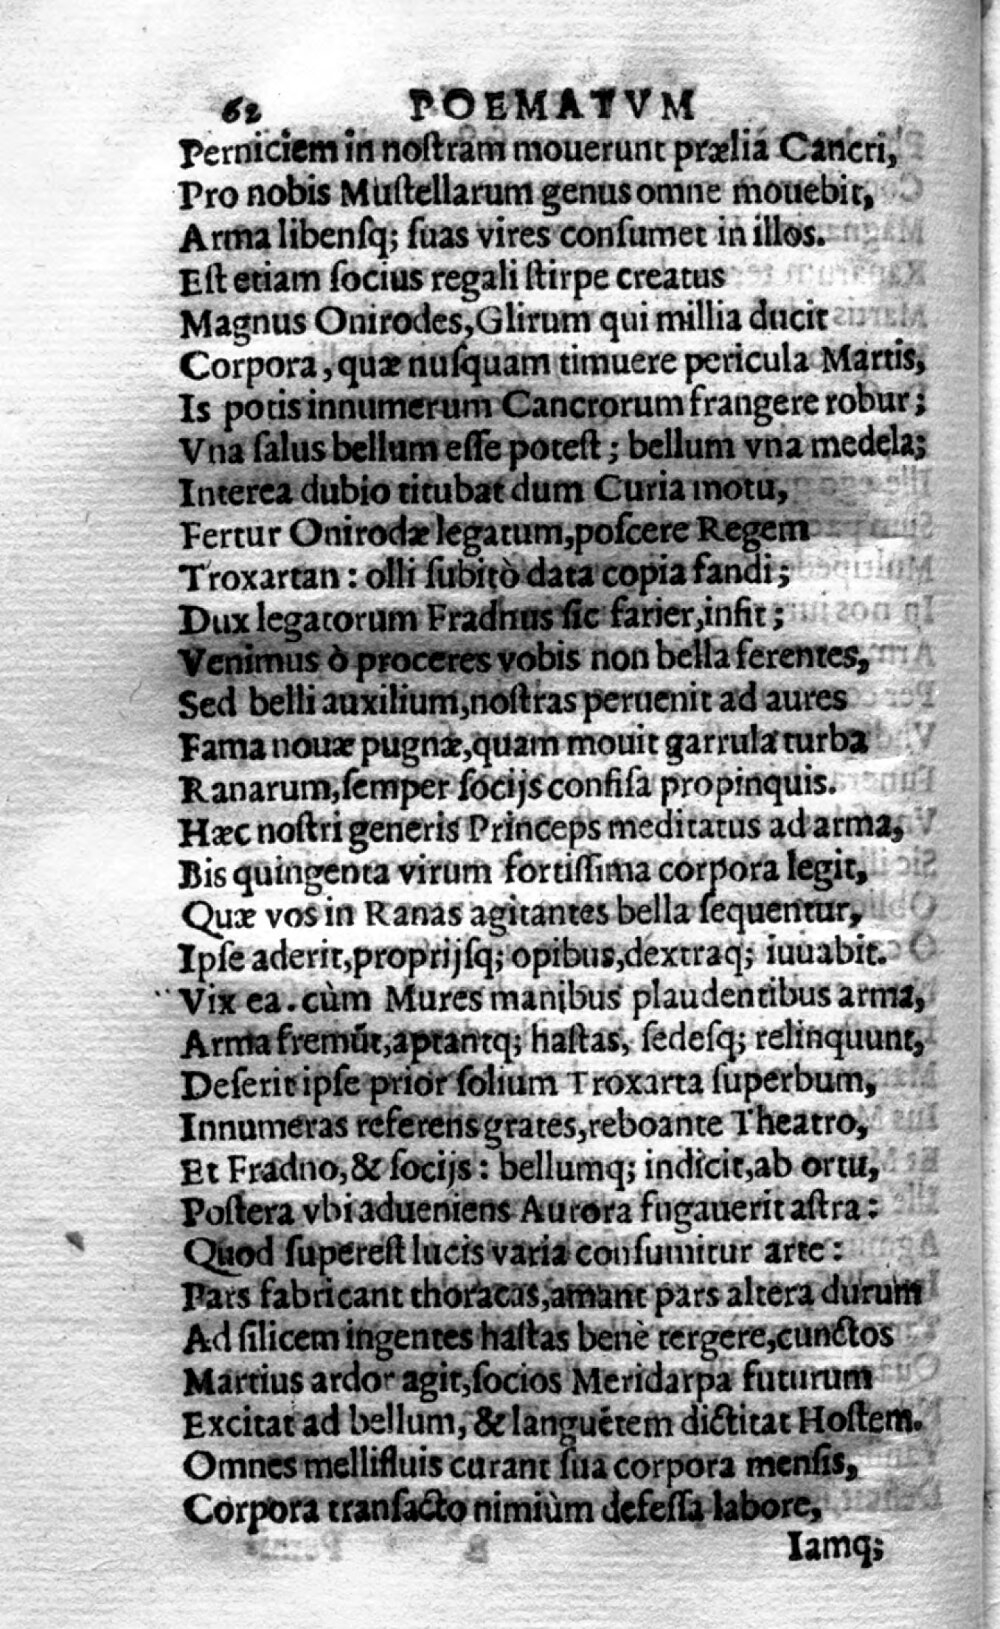 62 POEMATVM
Perniciem in noſtram mouerunt præliá Cancri,
Pro nobis Muſtellarum genus omne mouebit,
Arma libenſq; ſuas vires conſumet in illos.
Eſt etiam ſocius regali ſtirpe creatus
Magnus Onirodes, Glirum qui millia ducit
Corpora, quæ nuſquam timuere pericula Martis,
Is potis innumerum Cancrorum frangere robur;
Vna ſalus bellum eſſe poteſt; bellum vna medela;
Interea dubio titubat dum Curia motu,
Fertur Onirodæ legatum, poſcere Regem
Troxartan: olli ſubitò data copia fandi;
Dux legatorum Fradnus ſic farier, infit;
Venimus ò proceres vobis non bella ferentes,
Sed belli auxilium, noſtras peruenit ad aures
Fama nouæ pugnæ, quam mouit garrula turba
Ranarum, ſemper ſocijs confiſa propinquis.
Hæc noſtri generis Princeps meditatus ad arma,
Bis quingenta virum fortiſſima corpora legit,
Quæ vos in Ranas agitantes bella ſequentur,
Ipſe aderit, proprijſq; opibus, dextraq; iuuabit.
Vix ea. cùm Mures manibus plaudentibus arma,
Arma fremūt, aptantq; haſtas, ſedeſq; relinquunt,
Deſerit ipſe prior ſolium Troxarta ſuperbum,
Innumeras referens grates, reboante Theatro,
Et Fradno, & ſocijs: bellumq; indicit, ab ortu,
Poſtera vbi adueniens Aurora fugauerit aſtra:
Quod ſupereſt lucis varia conſumitur arte:
Pars fabricant thoracas, amant pars altera durum
Ad ſilicem ingentes haſtas benè tergere, cunctos
Martius ardor agit, ſocios Meridarpa futurum
Excitat ad bellum, & languētem dictitat Hoſtem.
Omnes mellifluis curant ſua corpora menſis,
Corpora tranſacto nimiùm defeſſa labore,
Iamq;